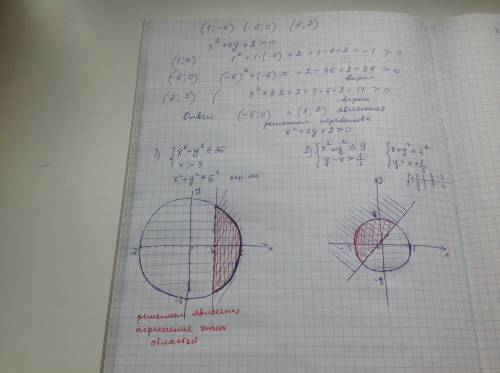 (1;-4) (-6;0) (3;2)
x²+xy+2>0
(1;-4) 1²+1·(-4)+2=1-4+2=-1>0
(-6;0) (-6)²+(-6)·0+2=36+2=38>0
верно
(3;2) 3²+3·2+2=9+6+2=17>0
верно
Ответ (-6;0) и (3;2) являются
решением неравенства
x²+xy+2>0
1) { x²+y²≤36
x>3
x²+y²=6²
2) { x²+y²≤9
y-x>
{ x+y²≤3²
y>x+
y
x
-6
y
x
-3
решением является
пересечение этих
областей